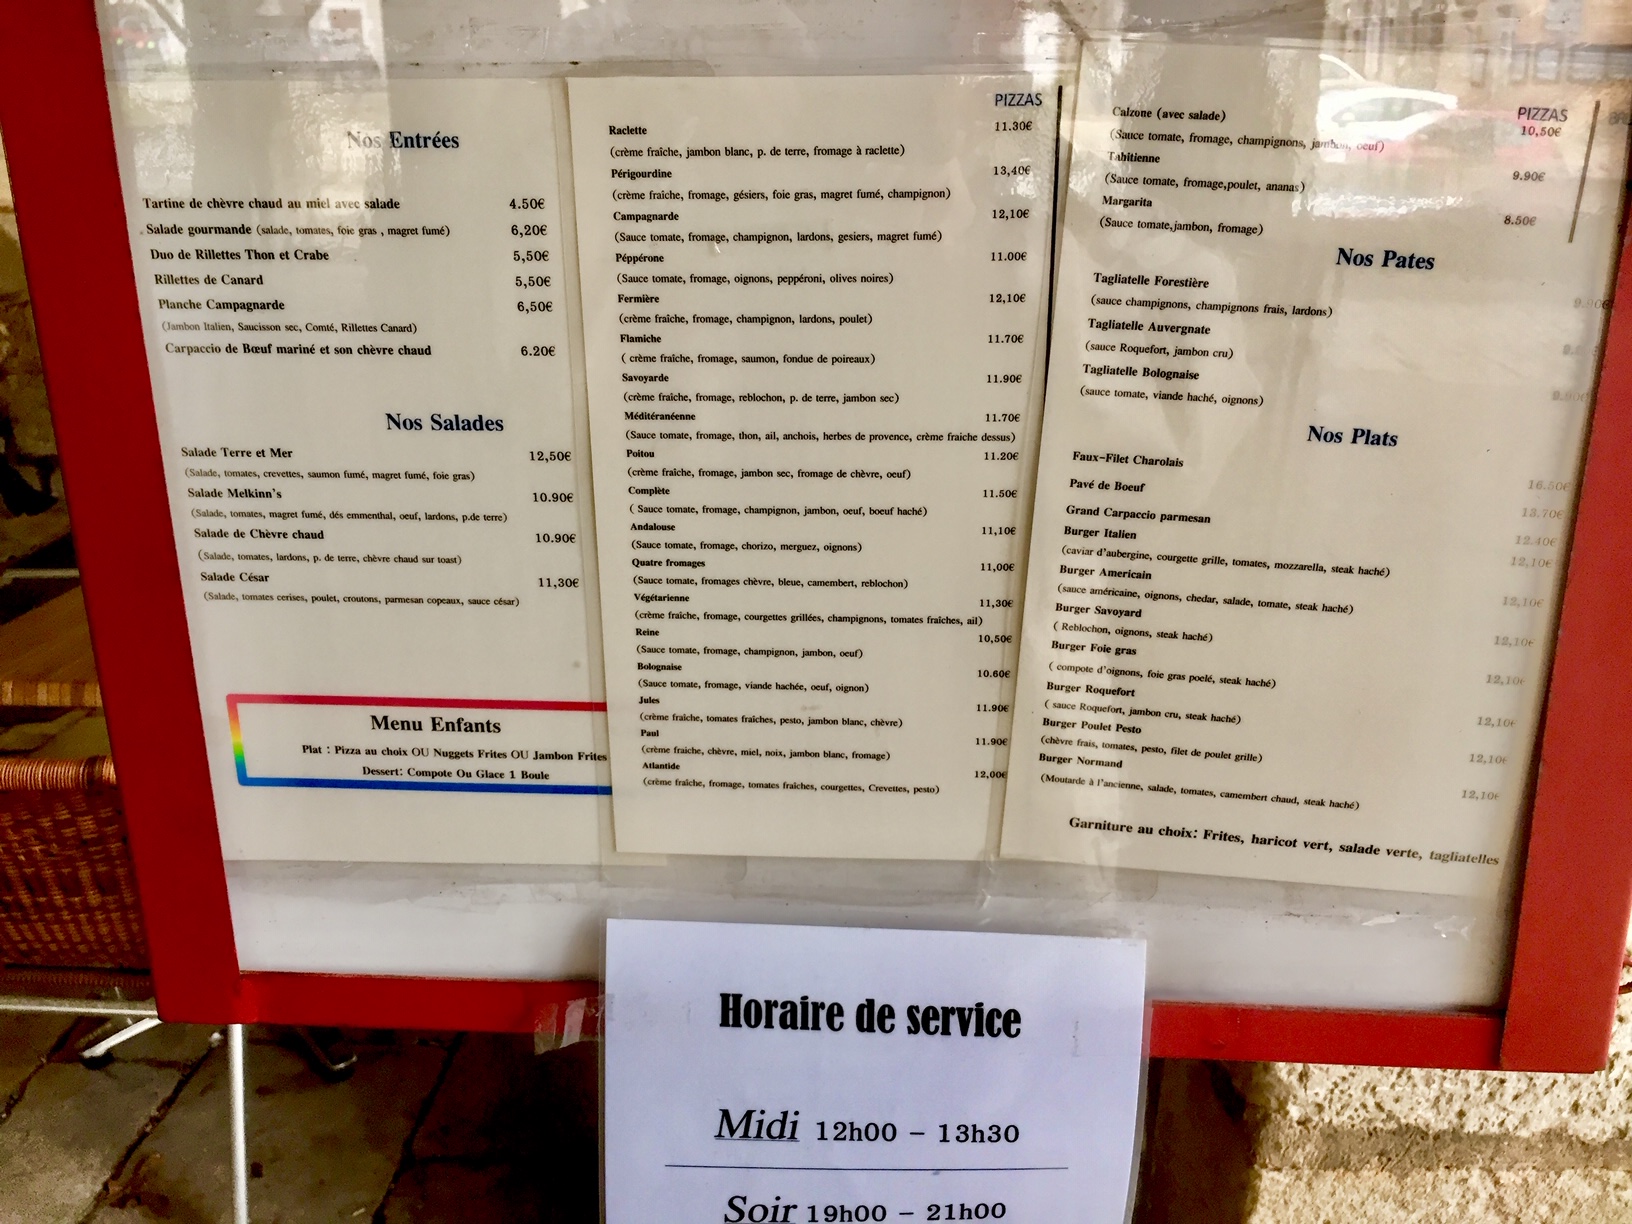 Nos Entrées
Tartine de chèvre chaud au miel avec salade 4.50€
Salade gourmande (salade, tomates, foie gras , magret fumé) 6,20€
Duo de Rillettes Thon et Crabe 5,50€
Rillettes de Canard 5,50€
Planche Campagnarde 6,50€
(Jambon Italien, Saucisson sec, Comté, Rillettes Canard)
Carpaccio de Bœuf mariné et son chèvre chaud 6.20€
Nos Salades
Salade Terre et Mer 12,50€
(Salade, tomates, crevettes, saumon fumé, magret fumé, foie gras)
Salade Melkinn's 10.90€
(Salade, tomates, magret fumé, dés emmenthal, oeuf, lardons, p.de terre)
Salade de Chèvre chaud 10.90€
(Salade, tomates, lardons, p. de terre, chèvre chaud sur toast)
Salade César 11,30€
(Salade, tomates cerises, poulet, croutons, parmesan copeaux, sauce césar)
Menu Enfants
Plat : Pizza au choix OU Nuggets Frites OU Jambon Frites
Dessert: Compote Ou Glace 1 Boule
PIZZAS
Raclette 11.30€
(crème fraîche, jambon blanc, p. de terre, fromage à raclette)
Périgourdine 13,40€
(crème fraîche, fromage, gésiers, foie gras, magret fumé, champignon)
Campagnarde 12,10€
(Sauce tomate, fromage, champignon, lardons, gesiers, magret fumé)
Péppérone 11.00€
(Sauce tomate, fromage, oignons, peppéroni, olives noires)
Fermière 12,10€
(crème fraîche, fromage, champignon, lardons, poulet)
Flamiche 11.70€
( crème fraîche, fromage, saumon, fondue de poireaux)
Savoyarde 11.90€
(crème fraîche, fromage, reblochon, p. de terre, jambon sec)
Méditéranéenne 11.70€
(Sauce tomate, fromage, thon, ail, anchois, herbes de provence, crème fraiche dessus)
Poitou 11.20€
(crème fraîche, fromage, jambon sec, fromage de chèvre, oeuf)
Complète 11.50€
( Sauce tomate, fromage, champignon, jambon, oeuf, boeuf haché)
Andalouse 11,10€
(Sauce tomate, fromage, chorizo, merguez, oignons)
Quatre fromages 11,00€
(Sauce tomate, fromages chèvre, bleue, camembert, reblochon)
Végétarienne 11,30€
(crème fraîche, fromage, courgettes grillées, champignons, tomates fraîches, ail)
Reine 10,50€
(Sauce tomate, fromage, champignon, jambon, oeuf)
Bolognaise 10.60€
(Sauce tomate, fromage, viande hachée, oeuf, oignon)
Jules 11.90€
(crème fraîche, tomates fraîches, pesto, jambon blanc, chèvre)
Paul 11.90€
(crème fraiche, chèvre, miel, noix, jambon blanc, fromage)
Atlantide 12,00€
(crème fraîche, fromage, tomates fraîches, courgettes, Crevettes, pesto)
PIZZAS
Calzone (avec salade) 10,50€
(Sauce tomate, fromage, champignons, jambon, oeuf)
Tahitienne 9.90€
(Sauce tomate, fromage,poulet, ananas)
Margarita 8.50€
(Sauce tomate,jambon, fromage)
Nos Pates
Tagliatelle Forestière 9.90€
(sauce champignons, champignons frais, lardons)
Tagliatelle Auvergnate
(sauce Roquefort, jambon cru)
Tagliatelle Bolognaise 9.90€
(sauce tomate, viande haché, oignons)
Nos Plats
Faux-Filet Charolais 16.50€
Pavé de Boeuf 13.70€
Grand Carpaccio parmesan 12.40€
Burger Italien 12,10€
(caviar d'aubergine, courgette grille, tomates, mozzarella, steak haché)
Burger Americain 12,10€
(sauce américaine, oignons, chedar, salade, tomate, steak haché)
Burger Savoyard 12,10€
( Reblochon, oignons, steak haché)
Burger Foie gras 12,10€
( compote d'oignons, foie gras poelé, steak haché)
Burger Roquefort 12,10€
( sauce Roquefort, jambon cru, steak haché)
Burger Poulet Pesto 12,10€
(chèvre frais, tomates, pesto, filet de poulet grille)
Burger Normand 12,10€
(Moutarde à l'ancienne, salade, tomates, camembert chaud, steak haché)
Garniture au choix: Frites, haricot vert, salade verte, tagliatelles
Horaire de service
Midi 12h00 – 13h30
Soir 19h00 – 21h00